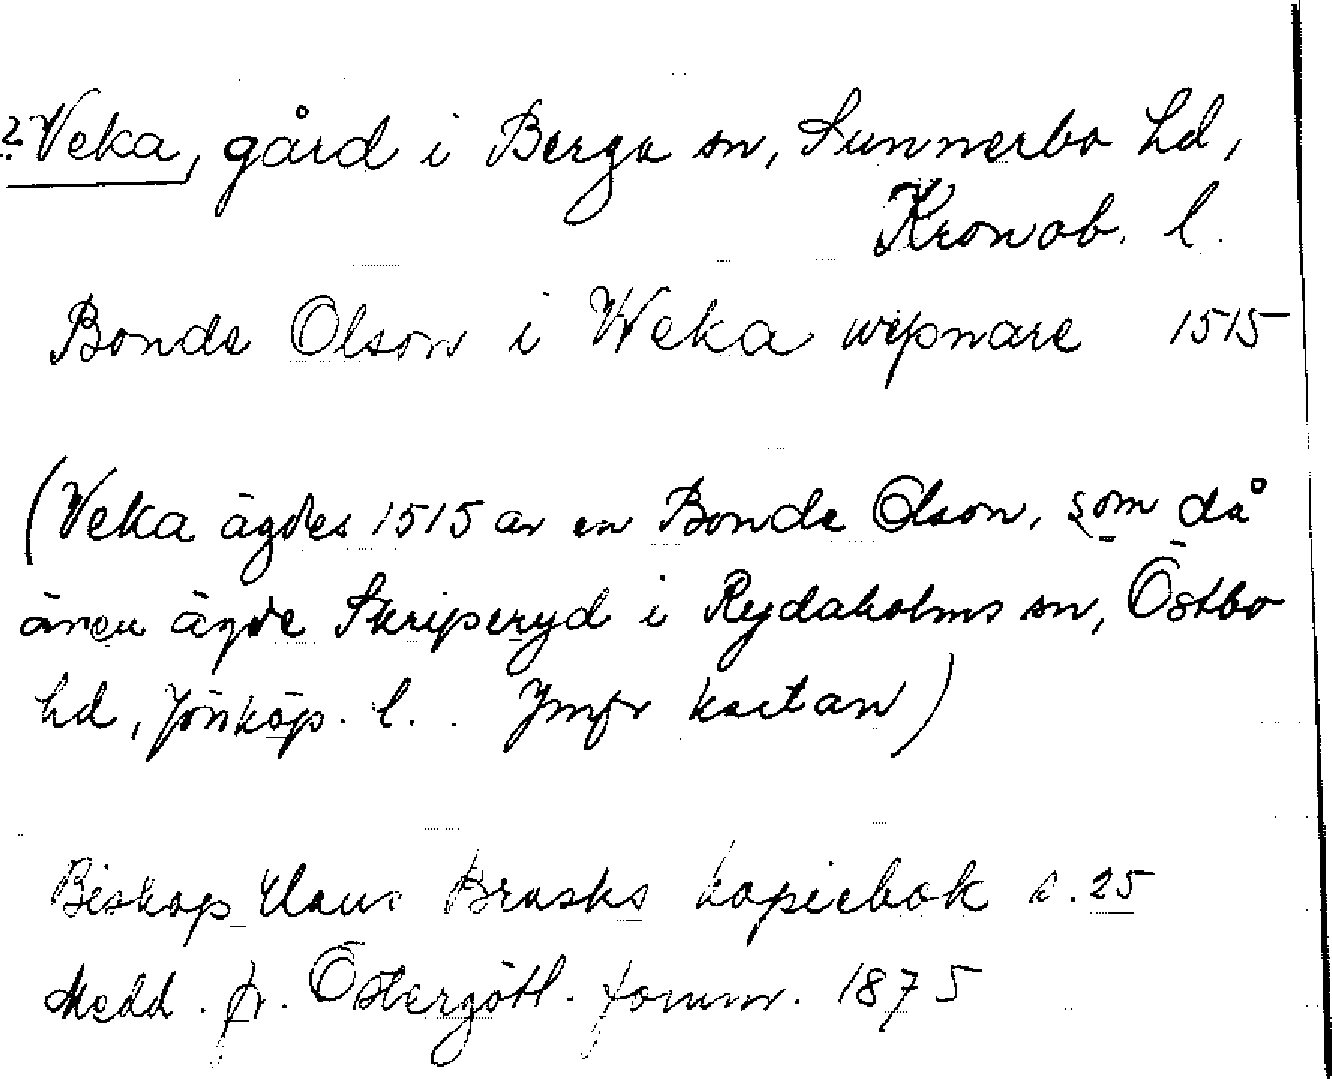 ? Veka, gård i Berga sn, Sunnerbo hd,
Kronob. l.
Bonde Olson i Weka wepnare 1515
(Veka ägdes 1515 av en Bonde Olson, som då
även ägde Skriperyd i Rydaholms sn, Östbo
hd, Jönköp. l. . Jmfr kartan)
Biskop Hans Brasks kopiebok s. 25
Medd. fr. Östergötl. fornm. 1875